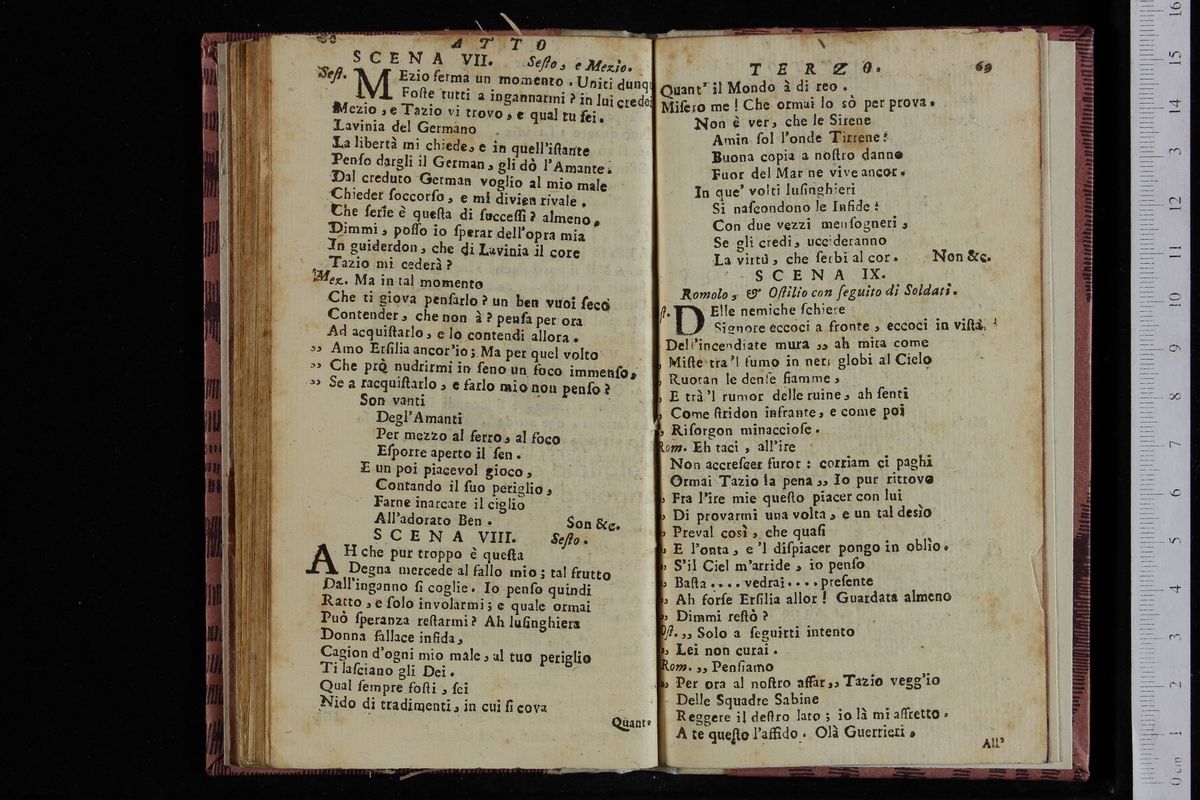 68 ATTO
SCENA VII. Seſto, e Mezio.
Seſt. MEzio ferma un momento. Uniti dunq
Foſte tutti a ingannarmi? in lui credei
Mezio, e Tazio vi trovo, e qual tu ſei.
Lavinia del Germano
La libertà mi chiede, e in quell'iſtante
Penſo dargli il German, gli dò l'Amante.
Dal creduto German voglio al mio male
Chieder ſoccorſo, e mi divien rivale.
Che ſerie è queſta di ſucceſſi? almeno,
Dimmi, poſſo io ſperar dell'opra mia
In guiderdon, che di Lavinia il core
Tazio mi cederà?
Mez. Ma in tal momento
Che ti giova penſarlo? un ben vuoi ſeco
Contender, che non à? penſa per ora
Ad acquiſtarlo, e lo contendi allora.
„ Amo Erſilia ancor'io; Ma per quel volto
„ Che prò nudrirmi in ſeno un foco immenſo,
„ Se a racquiſtarlo, e farlo mio non penſo?
Son vanti
Degl'Amanti
Per mezzo al ferro, al foco
Eſporre aperto il ſen.
E un poi piacevol gioco,
Contando il ſuo periglio,
Farne inarcare il ciglio
All'adorato Ben. Son &c.
SCENA VIII. Seſto.
AH che pur troppo è queſta
Degna mercede al fallo mio; tal frutto
Dall'inganno ſi coglie. Io penſo quindi
Ratto, e ſolo involarmi; e quale ormai
Può ſperanza reſtarmi? Ah luſinghiera
Donna fallace infida,
Cagion d'ogni mio male, al tuo periglio
Ti laſciano gli Dei.
Qual ſempre foſti, ſei
Nido di tradimenti, in cui ſi cova
Quant'
TERZO. 69
Quant' il Mondo à di reo.
Miſero me! Che ormai lo sò per prova.
Non è ver, che le Sirene
Amin ſol l'onde Tirrene:
Buona copia a noſtro danno
Fuor del Mar ne vive ancor.
In que' volti luſinghieri
Si naſcondono le Infide:
Con due vezzi menſogneri,
Se gli credi, uccideranno
La virtù, che ſerbi al cor. Non &c.
SCENA IX.
Romolo, & Oſtilio con ſeguito di Soldati.
ſt. DElle nemiche ſchiere
Signore eccoci a fronte, eccoci in viſta,
Dell'incendiate mura „ ah mira come
„ Miſte tra'l fumo in neri globi al Cielo
Ruotan le denſe fiamme,
„ E trà'l rumor delle ruine, ah ſenti
„ Come ſtridon infrante, e come poi
„ Riſorgon minaccioſe.
Rom. Eh taci, all'ire
Non accreſcer furor: corriam ci paghi
Ormai Tazio la pena „ Io pur ritrovo
„ Fra l'ire mie queſto piacer con lui
„ Di provarmi una volta, e un tal desìo
„ Preval così, che quaſi
„ E l'onta, e'l diſpiacer pongo in oblìo.
„ S'il Ciel m'arride, io penſo
„ Baſta .... vedrai .... preſente
„ Ah forſe Erſilia allor! Guardata almeno
„ Dimmi reſtò?
Oſt. „ Solo a ſeguirti intento
„ Lei non curai.
Rom. „ Penſiamo
„ Per ora al noſtro affar „ Tazio vegg'io
Delle Squadre Sabine
Reggere il deſtro lato; io là mi affretto.
A te queſto l'affido. Olà Guerrieri,
All'